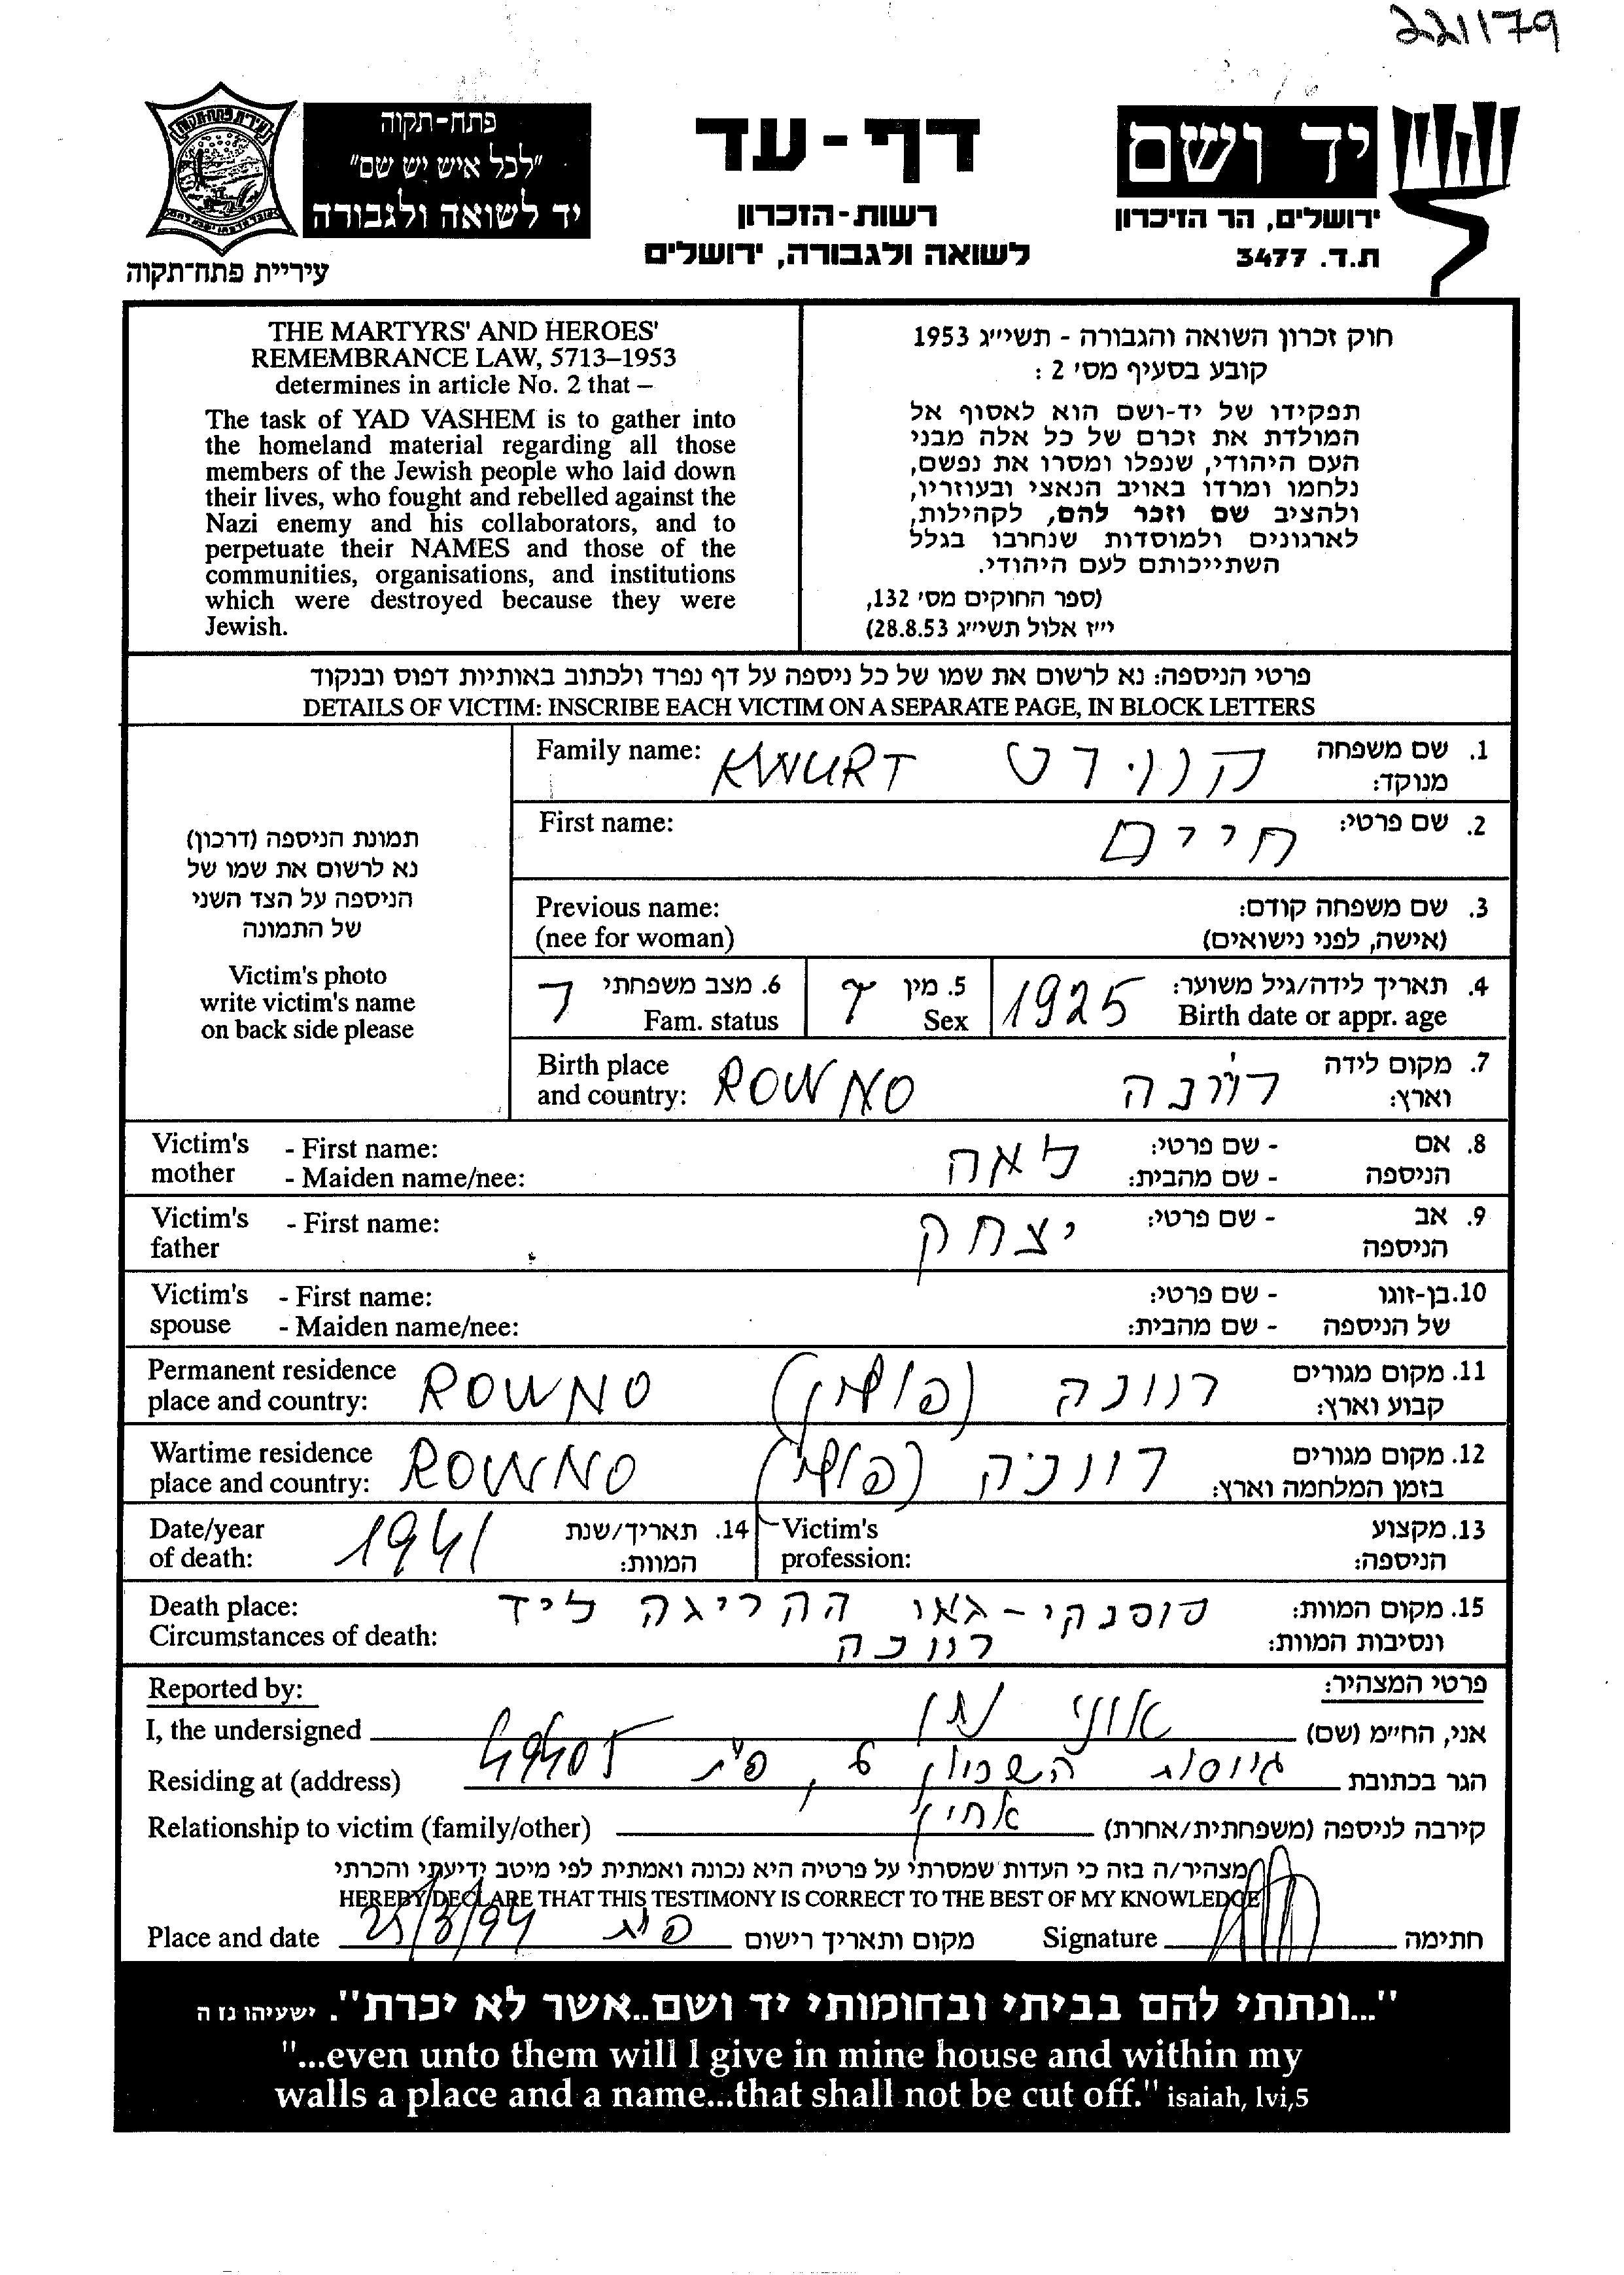 221179
פתח-תקוה
"לכל איש יש שם"
יד לשואה ולגבורה
עיריית פתח-תקוה
דף-עד
רשות-הזכרון
לשואה ולגבורה, ירושלים
יד ושם
ירושלים, הר הזיכרון
ת.ד. 3477
THE MARTYRS' AND HEROES'
REMEMBRANCE LAW, 5713–1953
determines in article No. 2 that –
The task of YAD VASHEM is to gather into
the homeland material regarding all those
members of the Jewish people who laid down
their lives, who fought and rebelled against the
Nazi enemy and his collaborators, and to
perpetuate their NAMES and those of the
communities, organisations, and institutions
which were destroyed because they were
Jewish.
חוק זכרון השואה והגבורה - תשי״ג 1953
קובע בסעיף מס' 2 :
תפקידו של יד-ושם הוא לאסוף אל
המולדת את זכרם של כל אלה מבני
העם היהודי, שנפלו ומסרו את נפשם,
נלחמו ומרדו באויב הנאצי ובעוזריו,
ולהציב שם וזכר להם, לקהילות,
לארגונים ולמוסדות שנחרבו בגלל
השתייכותם לעם היהודי.
(ספר החוקים מס' 132,
י״ז אלול תשי״ג 28.8.53)
פרטי הניספה: נא לרשום את שמו של כל ניספה על דף נפרד ולכתוב באותיות דפוס ובנקוד
DETAILS OF VICTIM: INSCRIBE EACH VICTIM ON A SEPARATE PAGE, IN BLOCK LETTERS
תמונת הניספה (דרכון)
נא לרשום את שמו של
הניספה על הצד השני
של התמונה
Victim's photo
write victim's name
on back side please
Family name: KWURT קוורט 1. שם משפחה
מנוקד:
First name: חיים 2. שם פרטי:
Previous name: 3. שם משפחה קודם:
(nee for woman) (אישה, לפני נישואים)
ר 6. מצב משפחתי ז 5. מין 1925 4. תאריך לידה/גיל משוער:
Fam. status Sex Birth date or appr. age
Birth place 7. מקום לידה
and country: ROWNO רוונה וארץ:
Victim's - First name: לאה - שם פרטי: 8. אם
mother - Maiden name/nee: - שם מהבית: הניספה
Victim's - First name: יצחק - שם פרטי: 9. אב
father הניספה
Victim's - First name: - שם פרטי: 10. בן-זוגו
spouse - Maiden name/nee: - שם מהבית: של הניספה
Permanent residence 11. מקום מגורים
place and country: ROWNO רוונה (פולין) קבוע וארץ:
Wartime residence 12. מקום מגורים
place and country: ROWNO רוונה (פולין) בזמן המלחמה וארץ:
Date/year 1941 14. תאריך/שנת Victim's 13. מקצוע
of death: המוות: profession: הניספה:
Death place: סוסנקי - גאי ההריגה ליד 15. מקום המוות:
Circumstances of death: רוונה ונסיבות המוות:
Reported by: פרטי המצהיר:
I, the undersigned נתן אני, החי״מ (שם)
Residing at (address) השכול 6, פ״ת 49405 הגר בכתובת
Relationship to victim (family/other) אחיין קירבה לניספה (משפחתית/אחרת)
מצהיר/ה בזה כי העדות שמסרתי על פרטיה היא נכונה ואמתית לפי מיטב ידיעתי והכרתי
HEREBY DECLARE THAT THIS TESTIMONY IS CORRECT TO THE BEST OF MY KNOWLEDGE
Place and date 25/3/94 פ״ת מקום ותאריך רישום Signature חתימה
"...ונתתי להם בביתי ובחומותי יד ושם..אשר לא יכרת". ישעיהו נז ה
"...even unto them will I give in mine house and within my
walls a place and a name...that shall not be cut off." isaiah, lvi,5